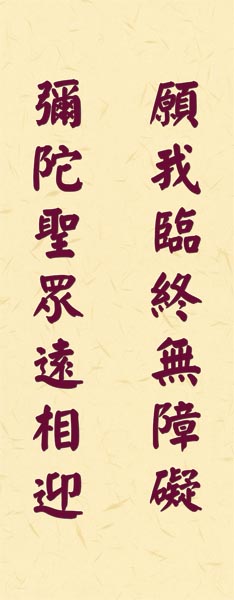 願我臨終無障礙
彌陀聖眾遠相迎